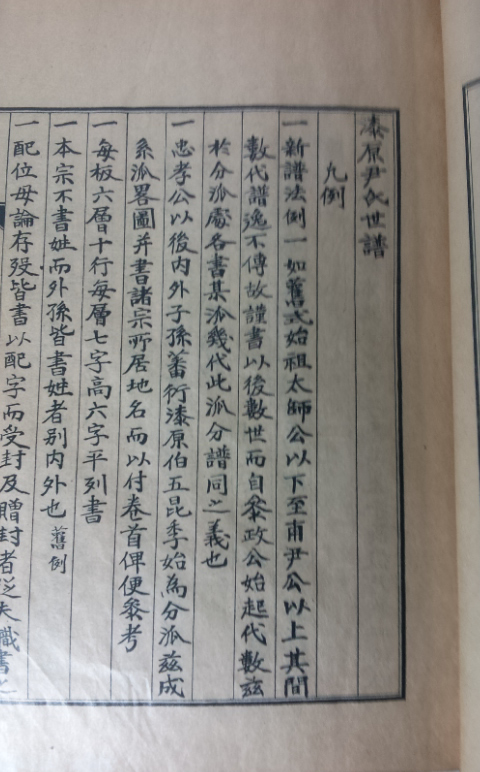 漆原尹氏世譜
凡例
一新譜法例一如舊式始祖太師公以下至甫尹公以上其間
數代譜逸不傳故謹書以後數世而自叅政公始起代數玆
於分派處各書某派幾代此派分譜同之義也
一忠孝公以後內外子孫蕃衍漆原伯五昆季始為分派玆成
系派畧圖并書諸宗所居地名而以付卷首俾便叅考
一每板六層十行每層七字高六字平列書
一本宗不書姓而外孫皆書姓者別內外也 舊例
一配位毋論存歿皆書以配字而受封及贈封者從夫職書之